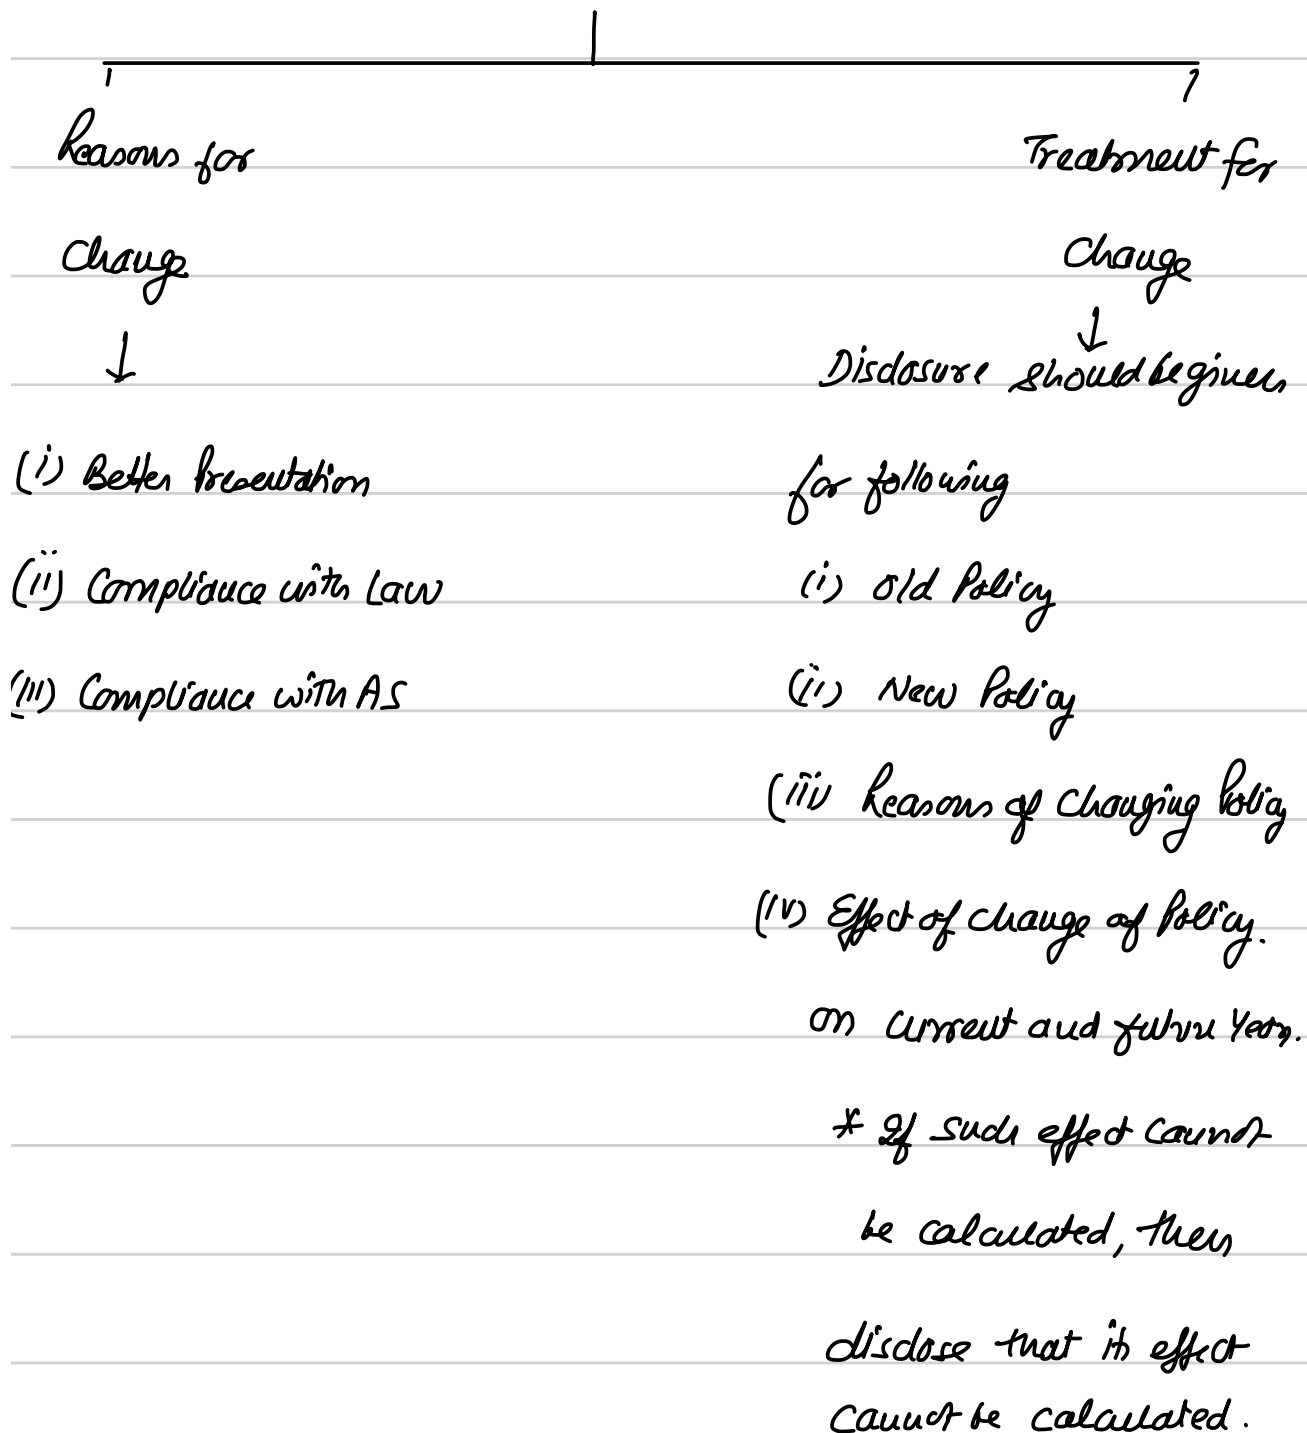 Reasons for
Change
(i) Better Presentation
(ii) Compliance with Law
(iii) Compliance with AS
Treatment for
Change
Disclosure should be given
for following
(i) Old Policy
(ii) New Policy
(iii) Reasons of Changing Policy
(iv) Effect of change of Policy.
on current and future Years.
* If such effect cannot
be calculated, then
disclose that its effect
cannot be calculated.